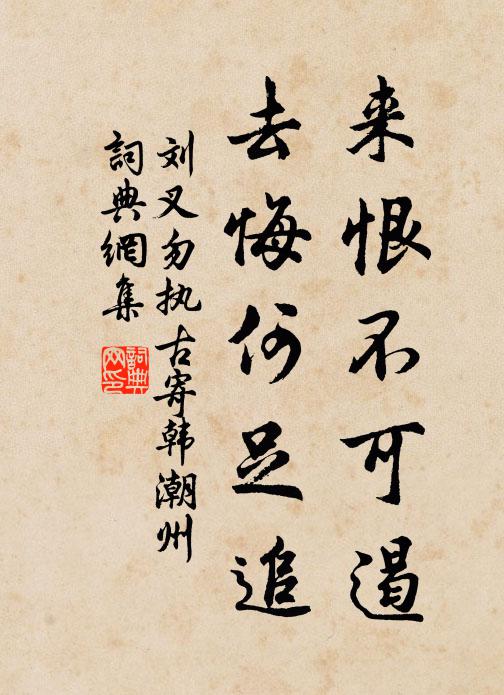 来恨不可遏
去悔何足追
刘叉勿执古寄韩潮州
詞典網集
詞典网印